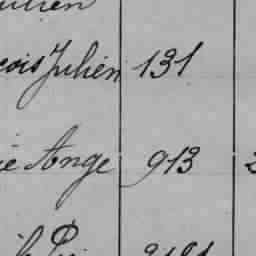 Julien
çois Julien 131
ie Ange 913